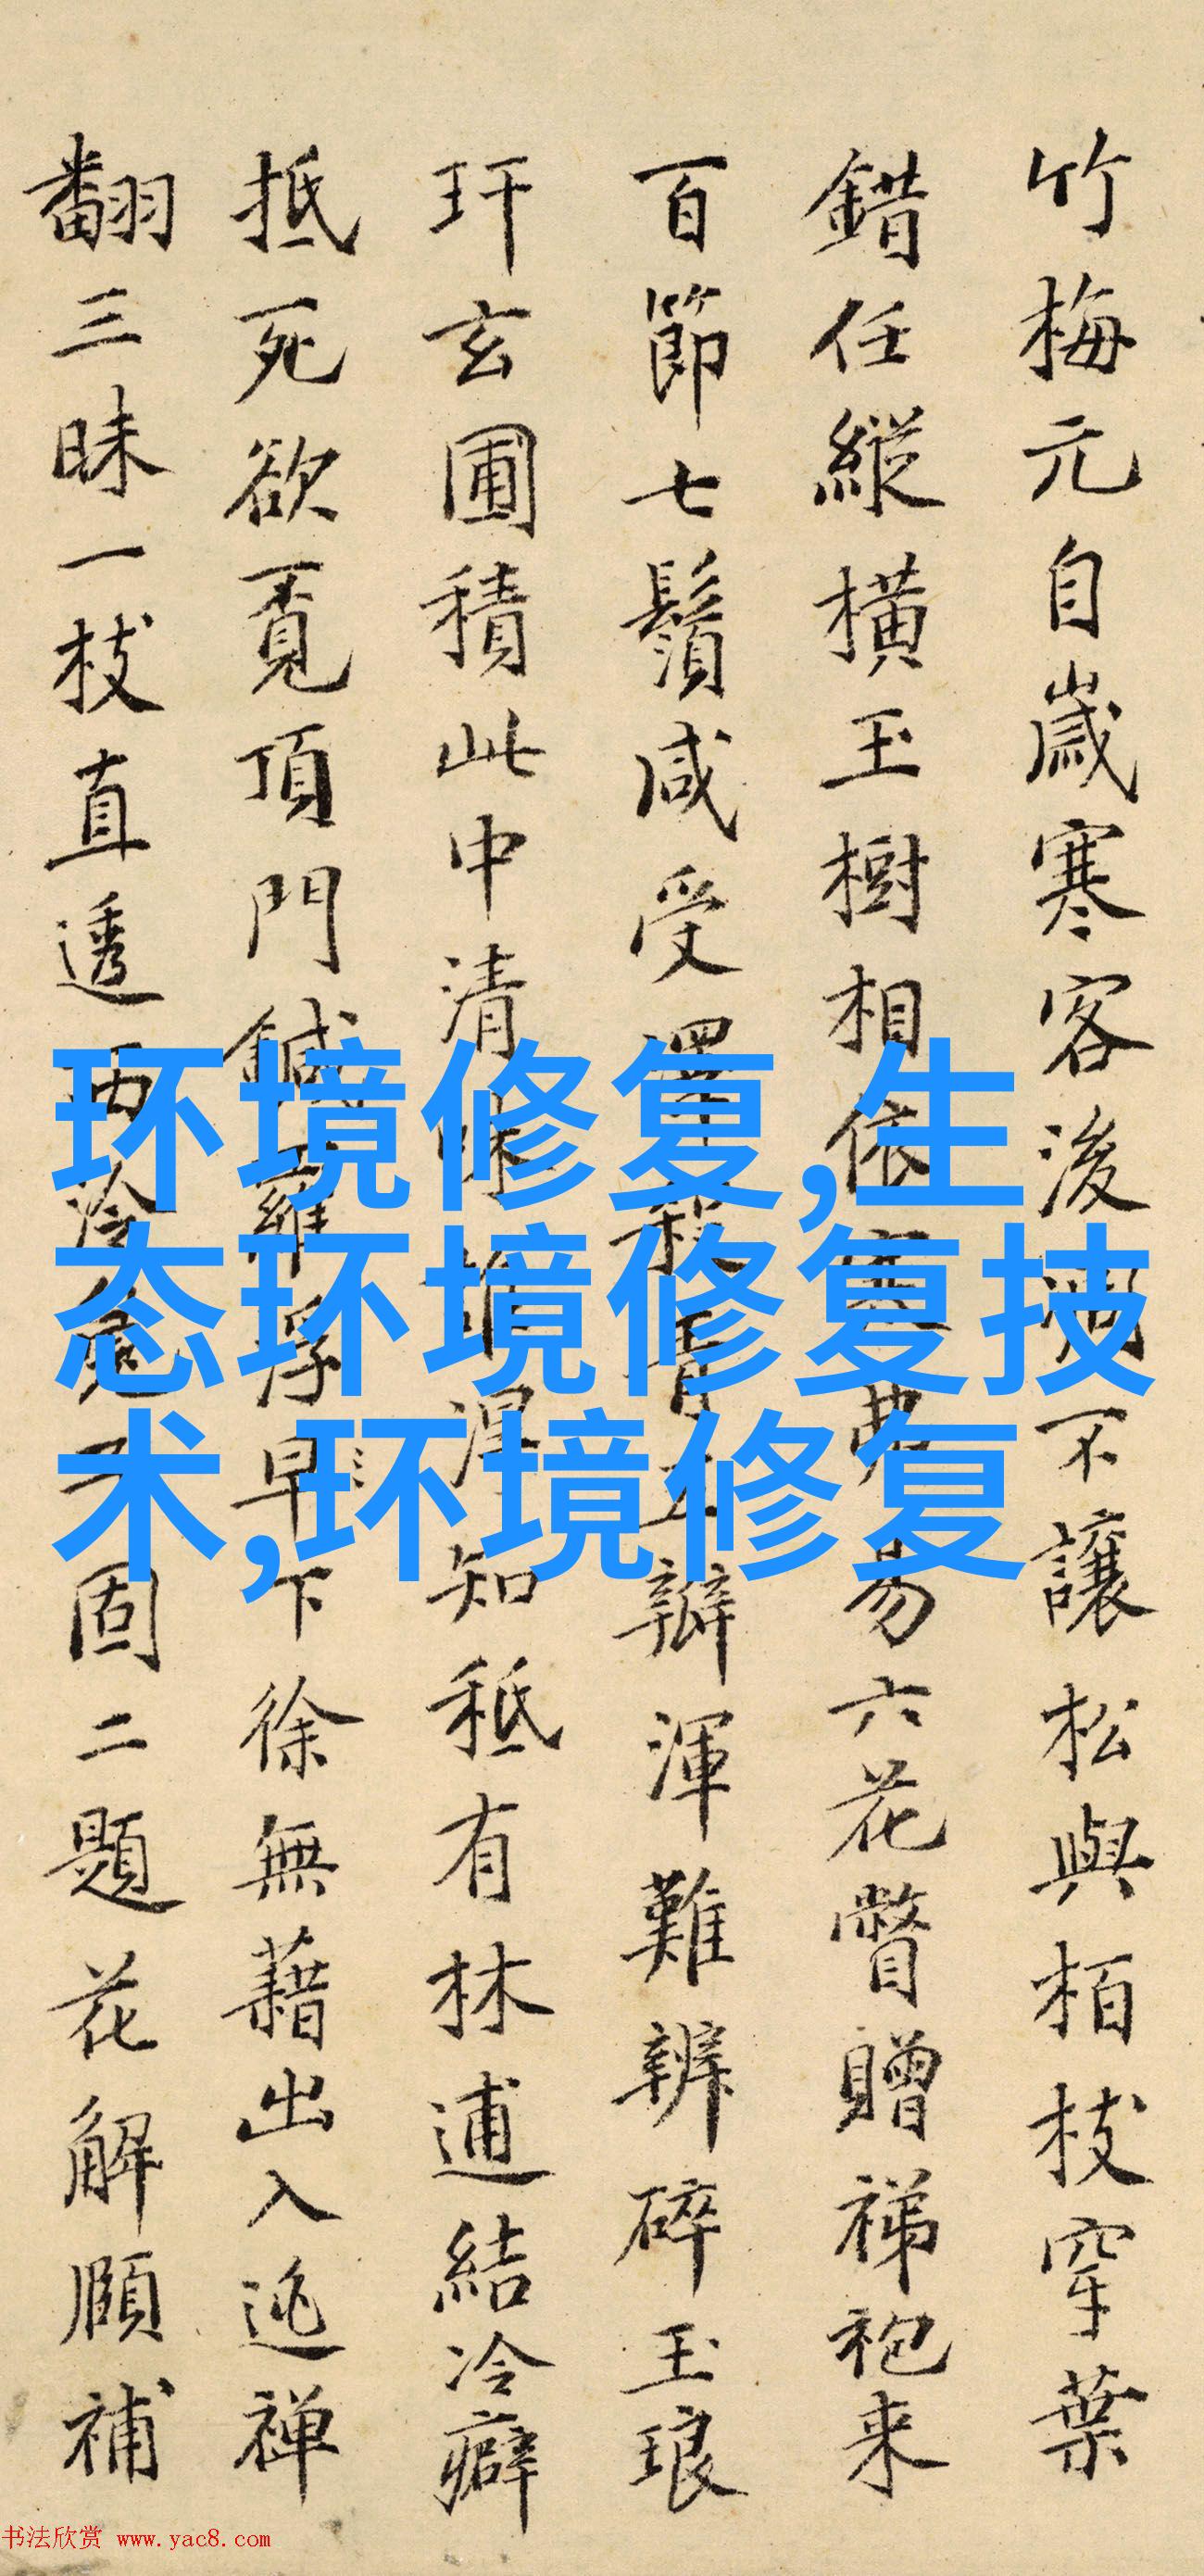 竹梅元自歲寒客後凋不讓松與栢枝穿葉
錯任縱橫玉樹相依易六花瞥贈祶袍来
百節七鬚咸受澤五瓣渾難辨碎玉琅
玕玄圃積此中清味誰得知秪有林逋結冷癖
抵死欲覔頂門鍼羅浮早下徐無藉出入逃禅
翻三昧一枝直透西泠固二題花解頤補
环境修复,生
态环境修复技
术,环境修复
书法欣赏 www.yac8.com